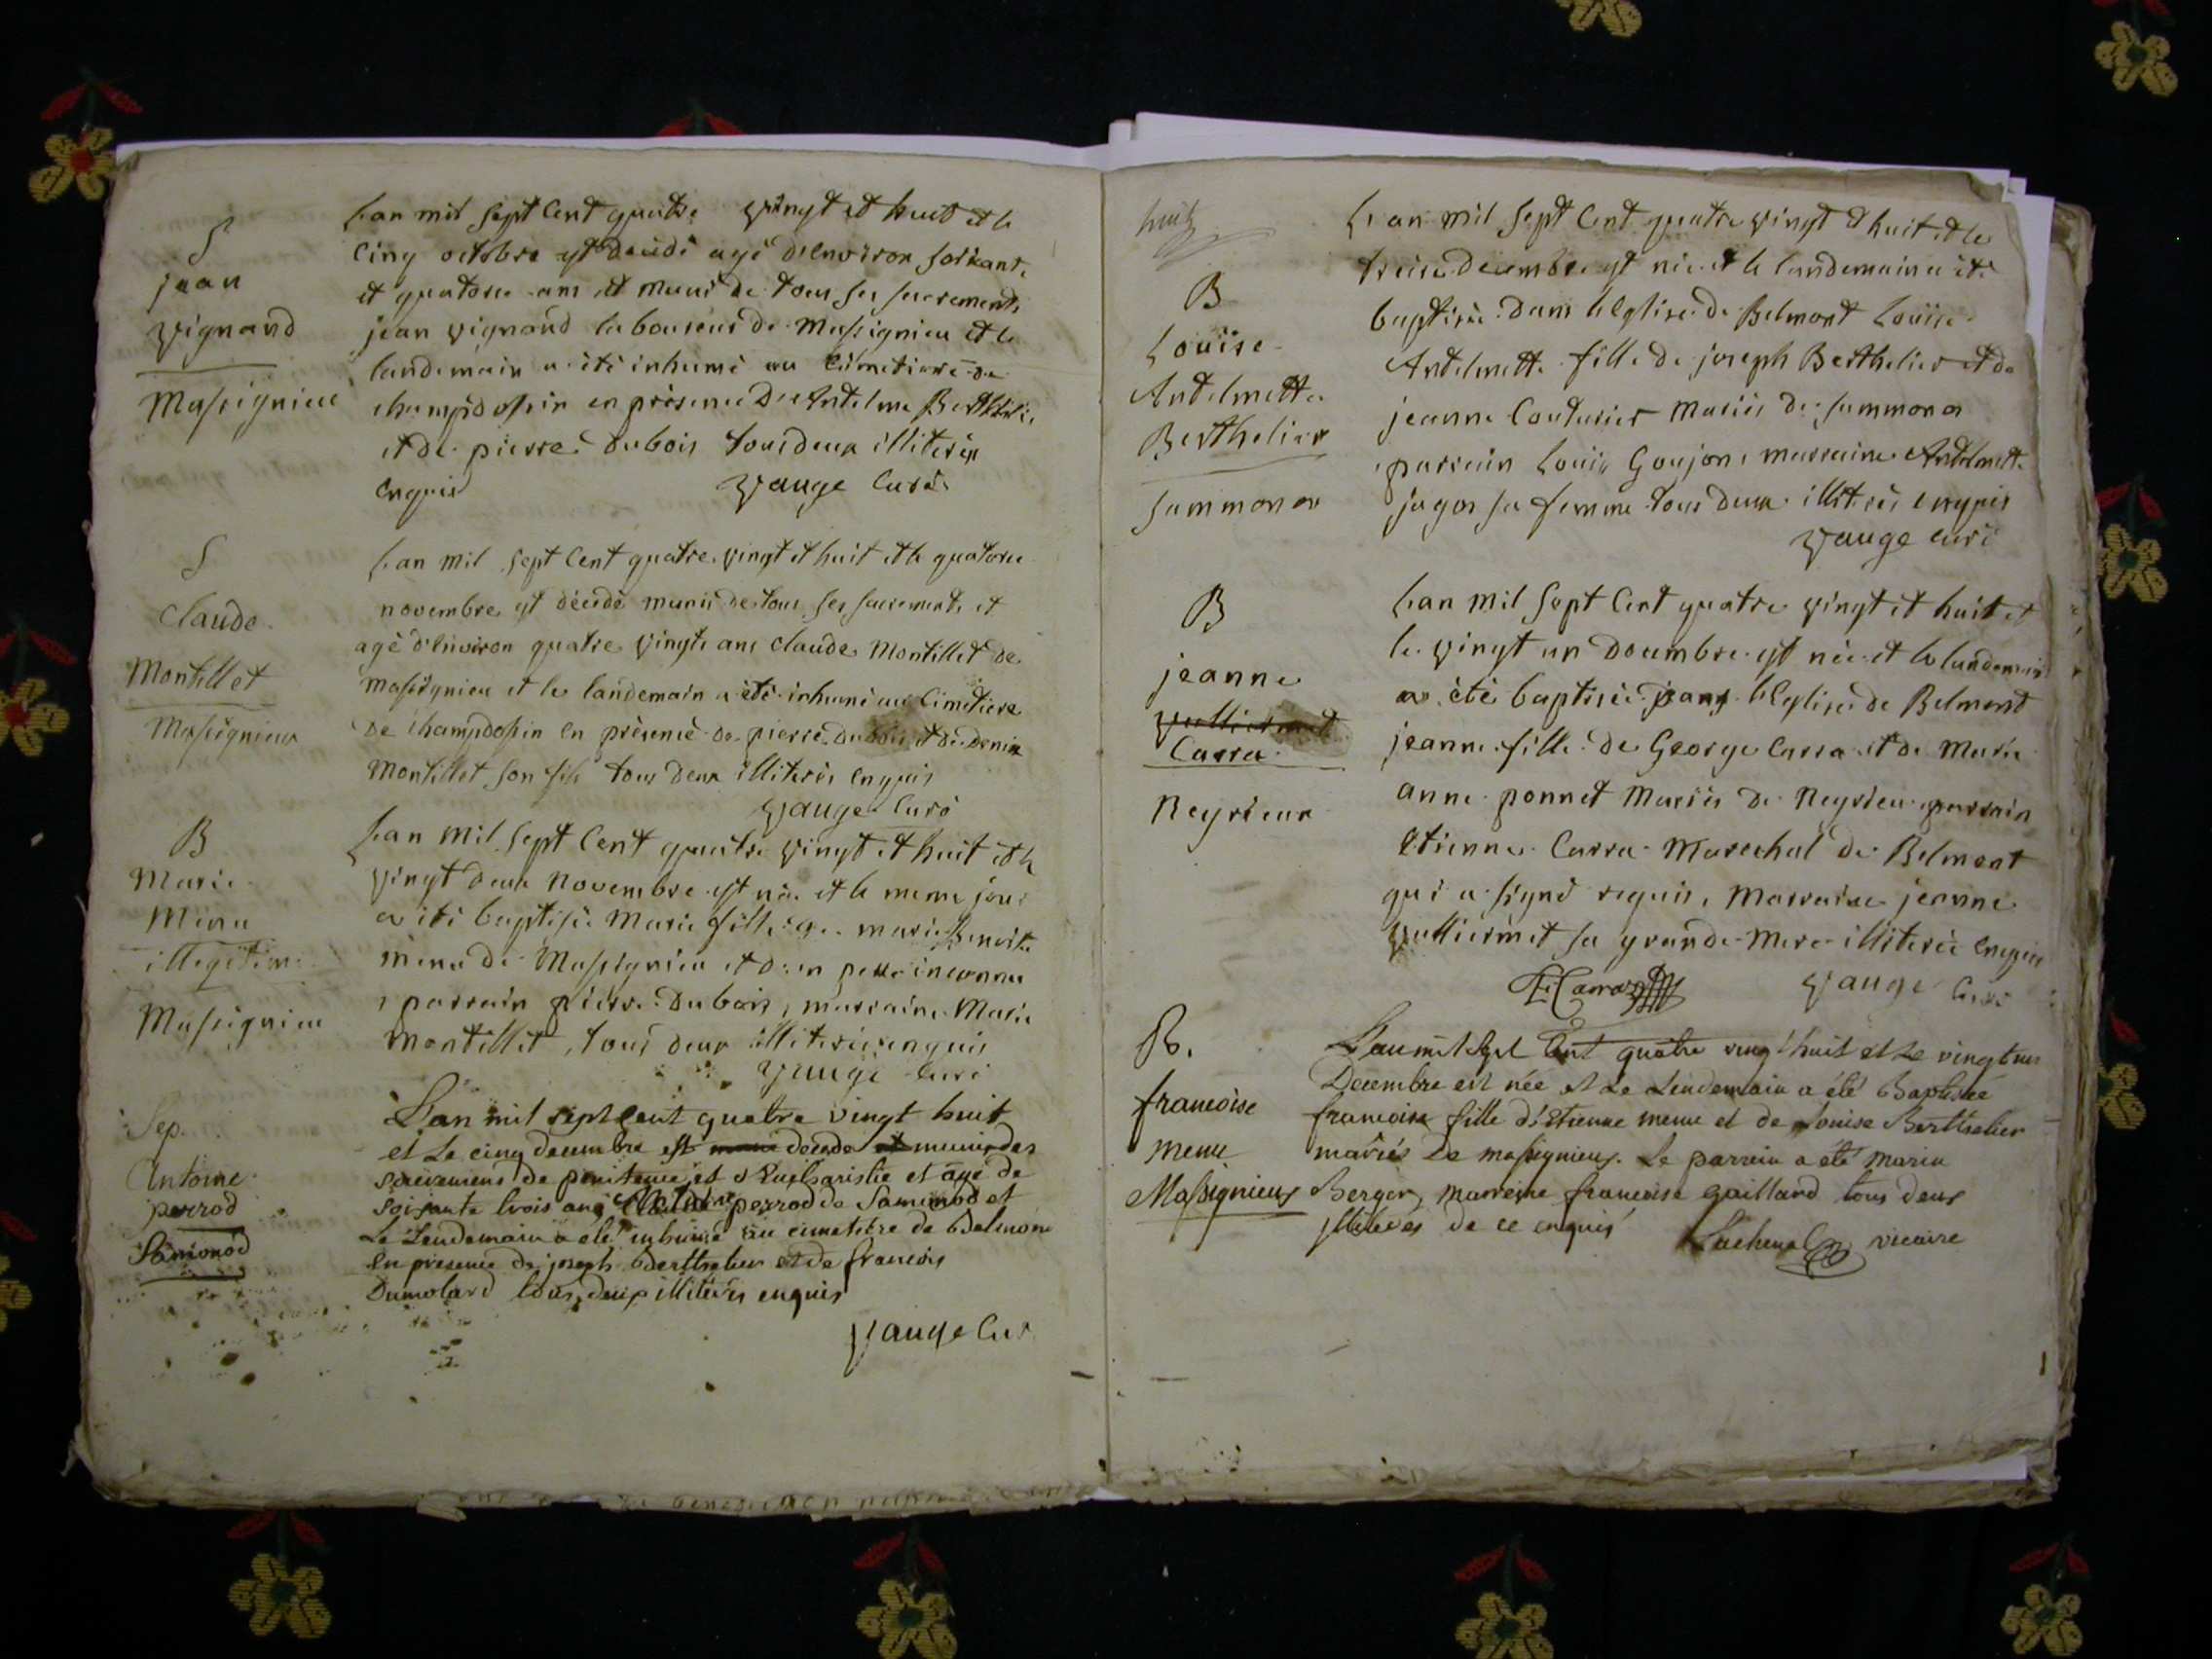 S
jean
vignand
Massignieu
L'an mil sept cent quatre vingt et huit et le
cinq octobre est decedé agé d'environ soixante
et quatorse ans et muni de tous ses sacrements
jean vignand laboureur de Massignieu et le
landemain a été inhumé au cimetiere de
champdossin en présence De Antelme Berthelie,
et de pierre Dubois tous deux illiterés
enquis vauge curé
S
Claude
Montillet
Massignieux
L'an mil sept cent quatre vingt et huit et le quatorse
novembre est décédé munis de tous ses sacrements et
agé d'environ quatre vingts ans claude Montillet de
massignieu et le landemain a été inhumé au cimetiere
de champdossin en présence de pierre Dubois et de denis
Montillet son fils tous deux illiterés enquis
vauge curé
B
Marie
Menu
illegitime
Massignieu
L'an mil sept cent quatre vingt et huit et le
vingt deux novembre est née et le meme jour
a été baptisée Marie fille de marie Benoite
menu de Massignieu et d'un pere inconnu
parrain pierre Dubois, marraine Marie
Montillet, tous deux illiterés enquis
vauge curé
Sep.
Antoine
perrod
Samonod
L'an mil sept cent quatre vingt huit
et Le cinq decembre est muni décédé et muni des
sacremens de penitence et d'Eucharistie et âgé de
soixante trois ans Antoine perrod de Samonod et
Le Lendemain a été inhumé au cimetiere de Belmont
En presence de joseph Berthelier et de francois
Dumolard tous deux illiterés enquis
vauge cur
huit
B
Louise
Antelmette
Berthelier
Sammonor
L'an mil sept cent quatre vingt et huit et le
treise decembre est née et le landemain a été
baptisée Dans l'Eglise de Belmont Louise
Antelmette fille de joseph Berthelier et de
jeanne Couturier Mariés de Sammonor
parrain Louis Goujon, marraine Antelmette
jagor sa femme tous deux illiterés enquis
vauge curé
B
jeanne
vulliermet
Carra
Neyrieux
L'an mil sept cent quatre vingt et huit et
le vingt un Decembre est née et le landemain
a été baptisée dans l'Eglise de Belmont
jeanne fille de George Carra et de Marie
anne ponnet Mariés de Neyrieu parrain
Etienne Carra Marechal de Belmont
qui a signé requis, Marraine jeanne
vulliermet sa grande Mere illiterée enquis
E Carra vauge curé
B.
francoise
menu
Massignieux
L'an mil sept cent quatre vingt huit et Le vingt un
Decembre est née et Le Lendemain a été Baptisée
francoise fille d'Etienne menu et de Louise Berthelier
mariés De massignieux. Le parrein a été Marin
Berger, marreine francoise gaillard tous deux
illiterés de ce enquis Lachenal vicaire